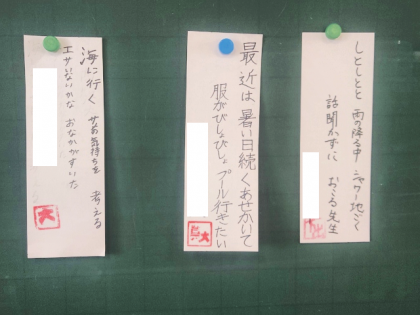 しとしとと 雨の降る中 シャワー地ごく
話聞かずに おこる先生
最近は 暑い日続くあせかいて
服がびしょびしょ プール行きたい
海に行く サメの気持ちを 考える
エサいないかな おなかがすいた